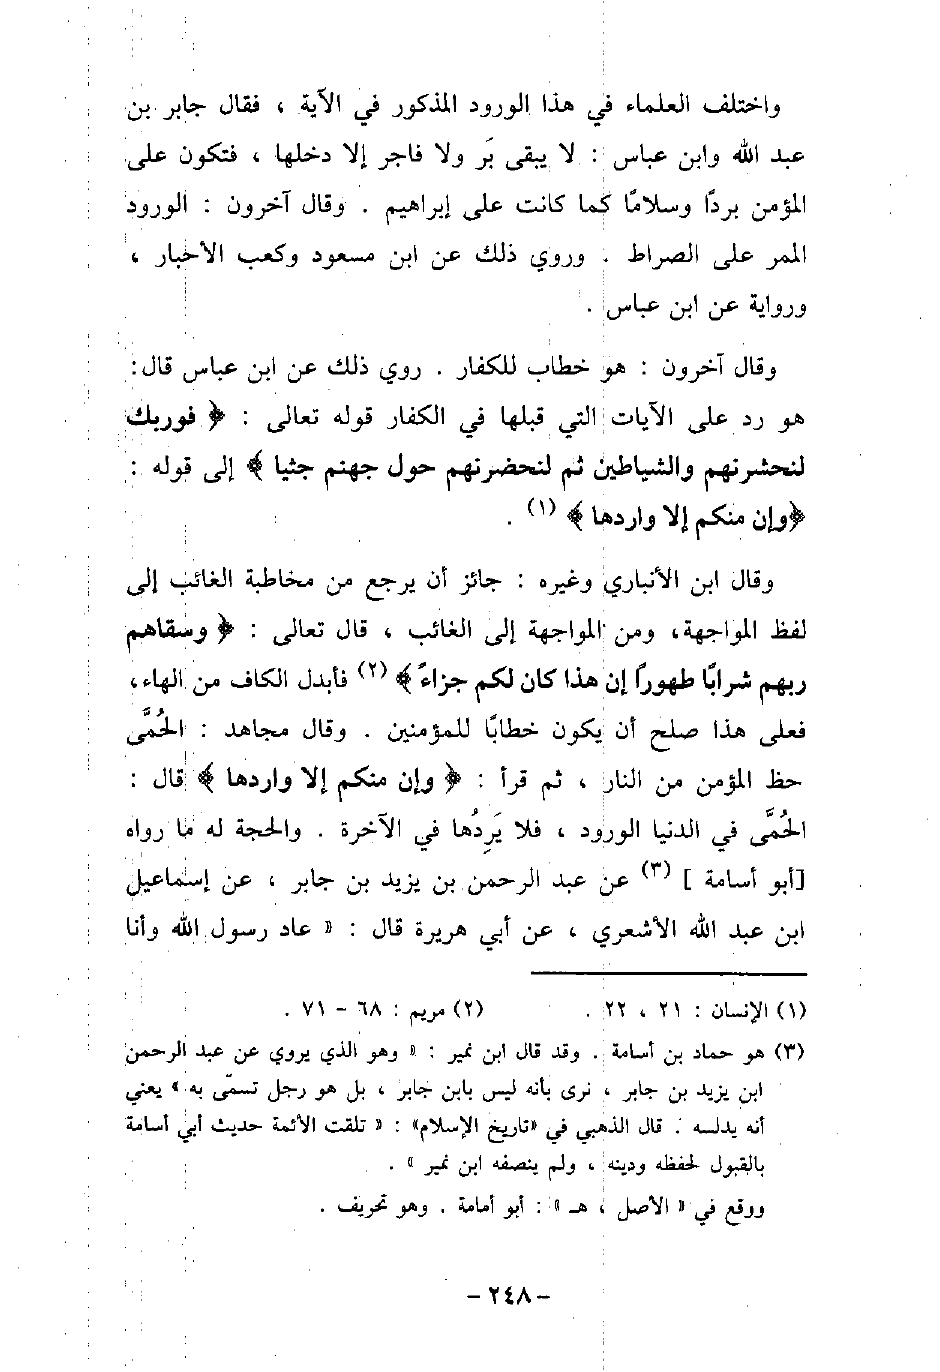 واختلف العلماء في هذا الورود المذكور في الآية ، فقال جابر بن
عبد الله وابن عباس : لا يبقى بَر ولا فاجر إلا دخلها ، فتكون على
المؤمن بردًا وسلامًا كما كانت على إبراهيم . وقال آخرون : الورود
الممر على الصراط . وروي ذلك عن ابن مسعود وكعب الأحبار ،
ورواية عن ابن عباس .
وقال آخرون : هو خطاب للكفار . روي ذلك عن ابن عباس قال :
هو رد على الآيات التي قبلها في الكفار قوله تعالى : ﴿ فوربك
لنحشرنهم والشياطين ثم لنحضرنهم حول جهنم جثيا ﴾ إلى قوله :
﴿وإن منكم إلا واردها ﴾ (١) .
وقال ابن الأنباري وغيره : جائز أن يرجع من مخاطبة الغائب إلى
لفظ المواجهة، ومن المواجهة إلى الغائب ، قال تعالى : ﴿ وسقاهم
ربهم شرابًا طهورًا إن هذا كان لكم جزاءً ﴾ (٢) فأبدل الكاف من الهاء،
فعلى هذا صلح أن يكون خطابًا للمؤمنين . وقال مجاهد : الحُمَّى
حظ المؤمن من النار ، ثم قرأ : ﴿ وإن منكم إلا واردها ﴾ قال :
الحُمَّى في الدنيا الورود ، فلا يَرِدُها في الآخرة . والحجة له ما رواه
[أبو أسامة ] (٣) عن عبد الرحمن بن يزيد بن جابر ، عن إسماعيل
ابن عبد الله الأشعري ، عن أبي هريرة قال : « عاد رسول الله وأنا
(١) الإنسان : ٢١ ، ٢٢ . (٢) مريم : ٦٨ - ٧١ .
(٣) هو حماد بن أسامة . وقد قال ابن نمير : « وهو الذي يروي عن عبد الرحمن
ابن يزيد بن جابر ، نرى بأنه ليس بابن جابر ، بل هو رجل تسمّى به » يعني
أنه يدلسه . قال الذهبي في «تاريخ الإسلام» : « تلقت الأئمة حديث أبي أسامة
بالقبول لحفظه ودينه ، ولم ينصفه ابن نمير » .
ووقع في « الأصل ، هـ » : أبو أمامة . وهو تحريف .
- ٢٤٨ -